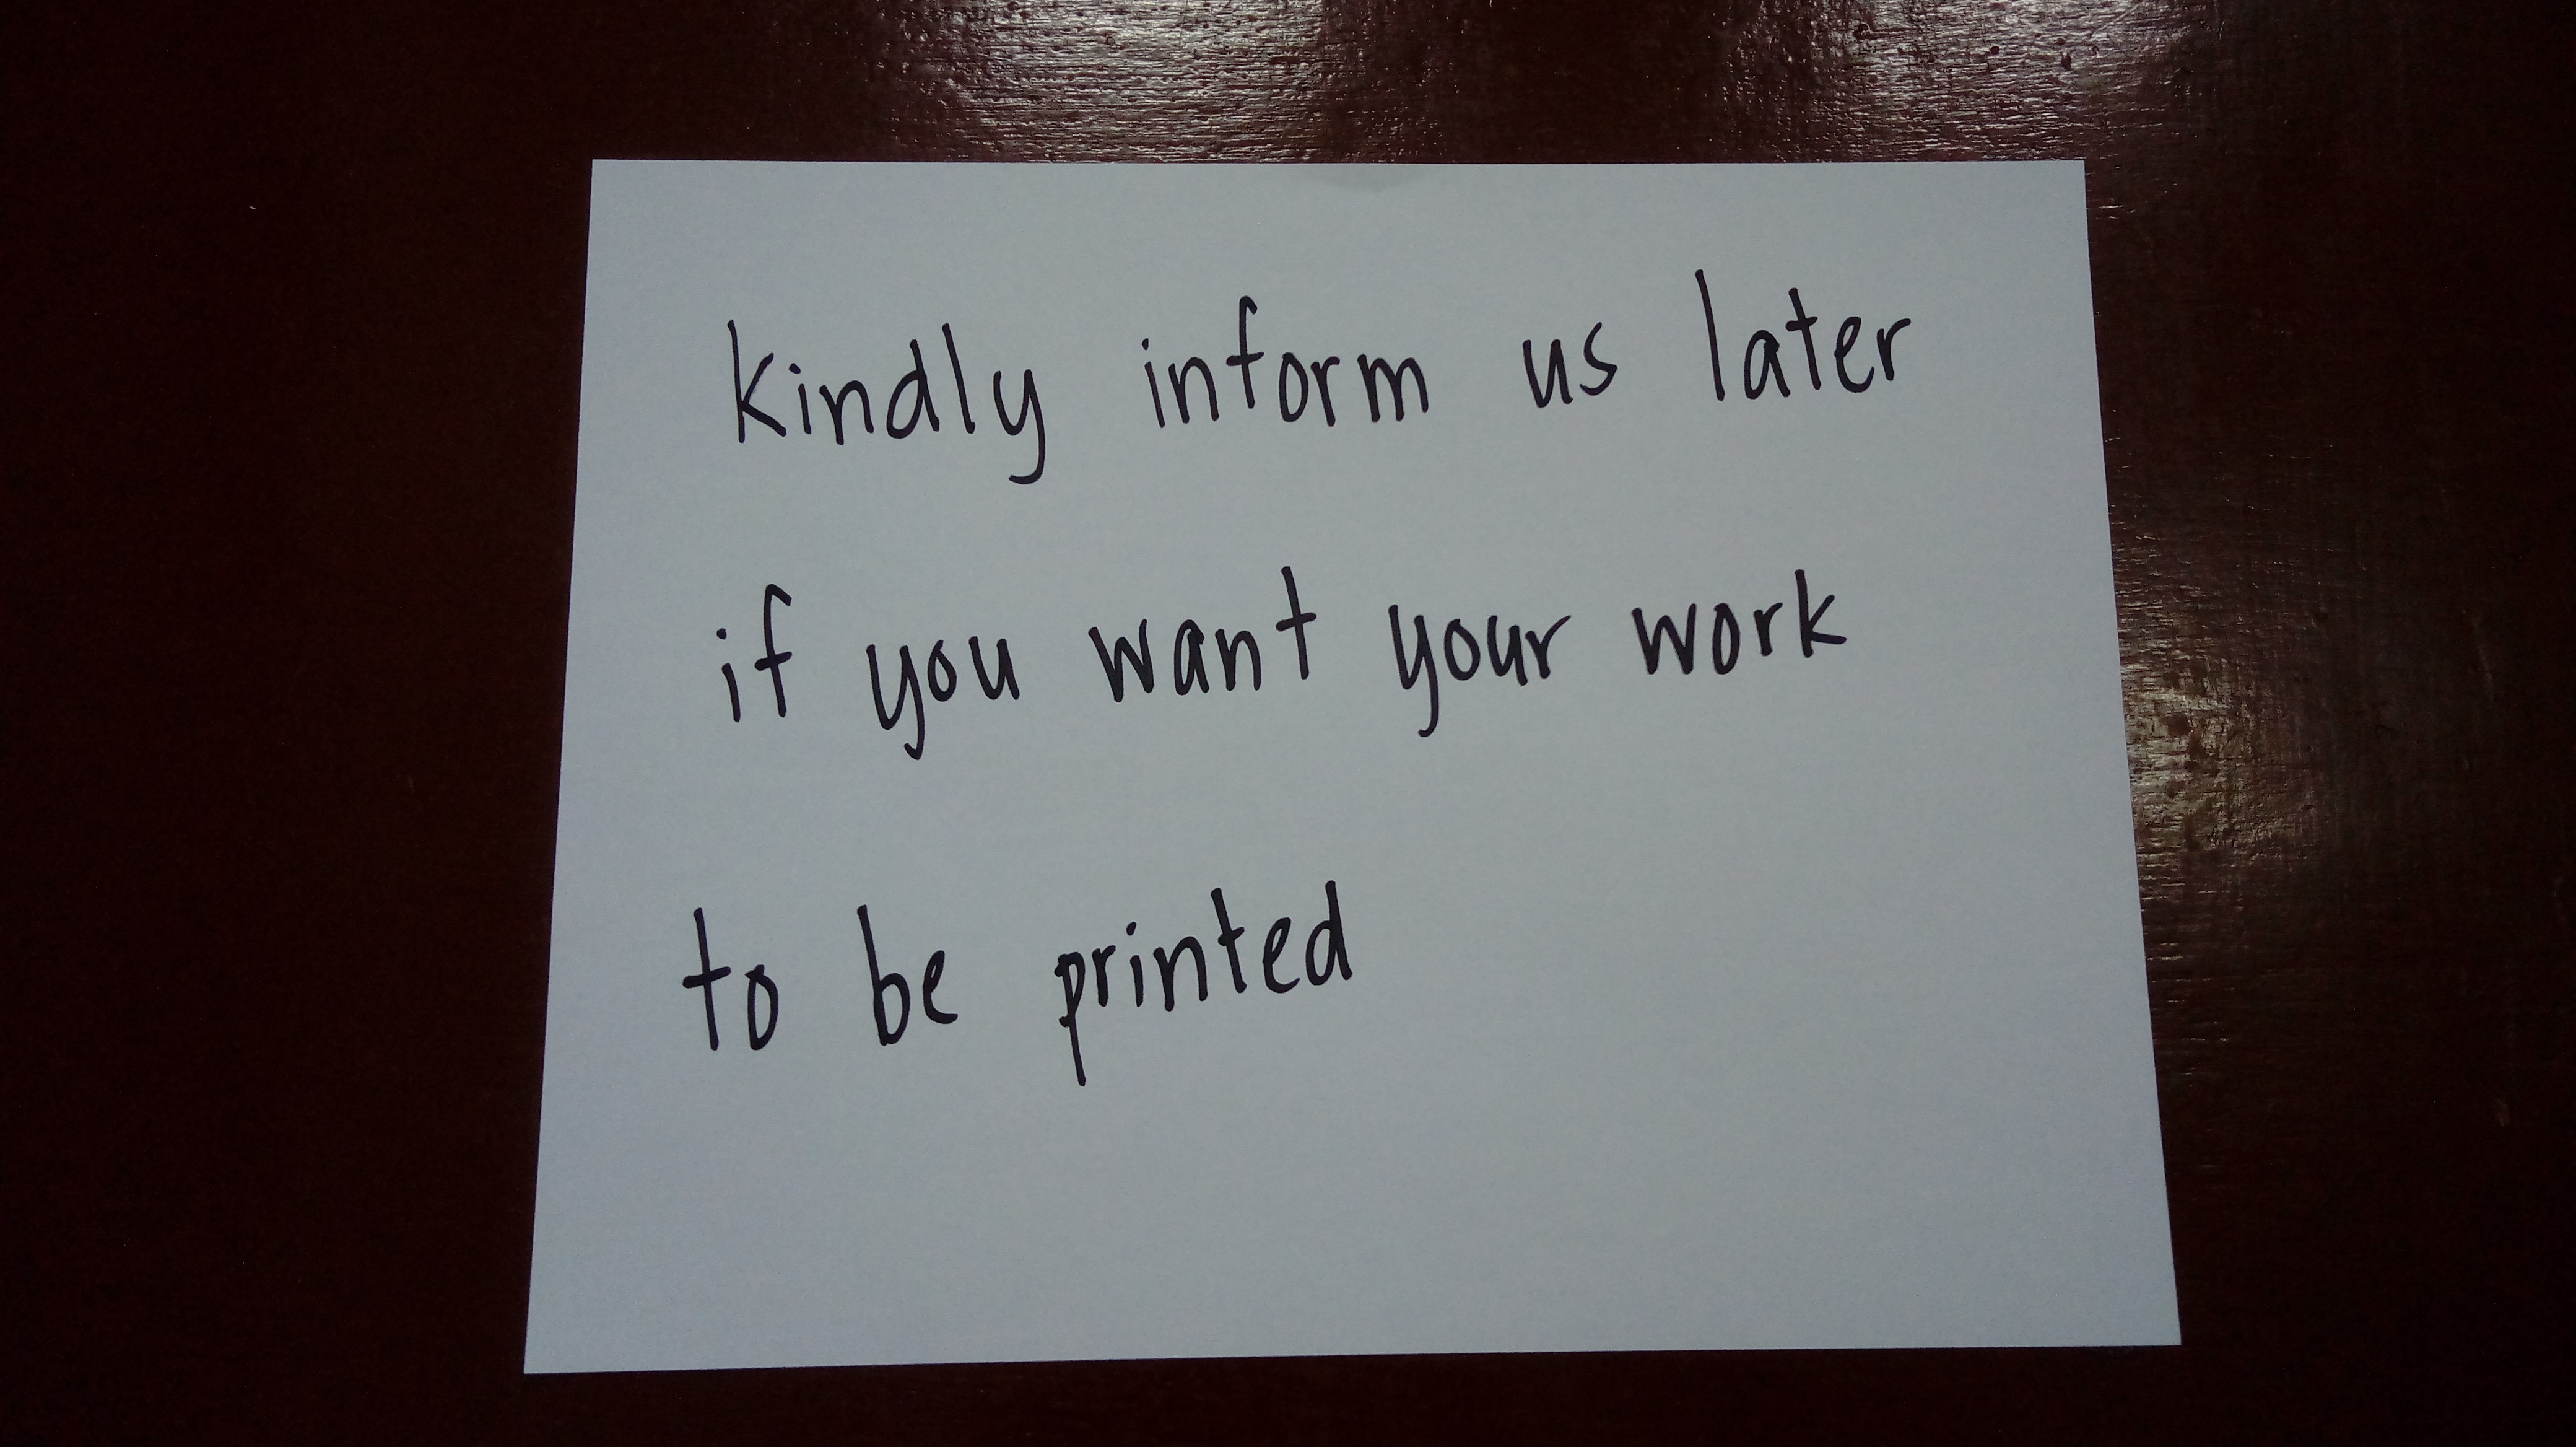 kindly inform us later
if you want your work
to be printed